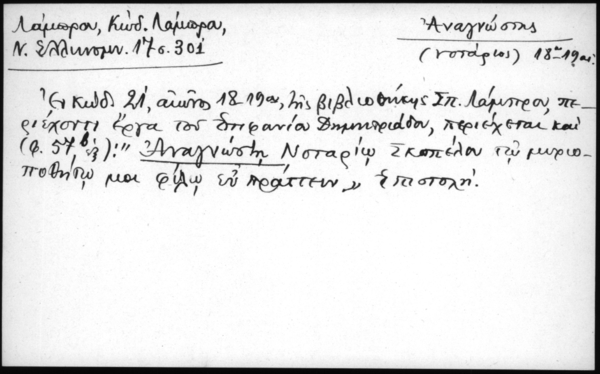 Λάμπρου, Κώδ. Λάμπρου,
Ν. Ἑλληνομν. 17 σ. 301
Ἀναγνώστης
(νοτάριος) 18ου-19ου αἰ.
Ἐν Κώδ 21, αἰῶνος 18-19ου, τῆς βιβλιοθήκης Σπ. Λάμπρου, πε-
ριέχοντι ἔργα τοῦ Ἐπιφανίου Δημητριάδου, περιέχεται καὶ
(φ. 57 β ἑξ): "Ἀναγνώστῃ Νοταρίῳ Σκοπέλου τῷ μυριο-
ποθήτῳ μοι φίλῳ εὖ πράττειν" Ἐπιστολή.